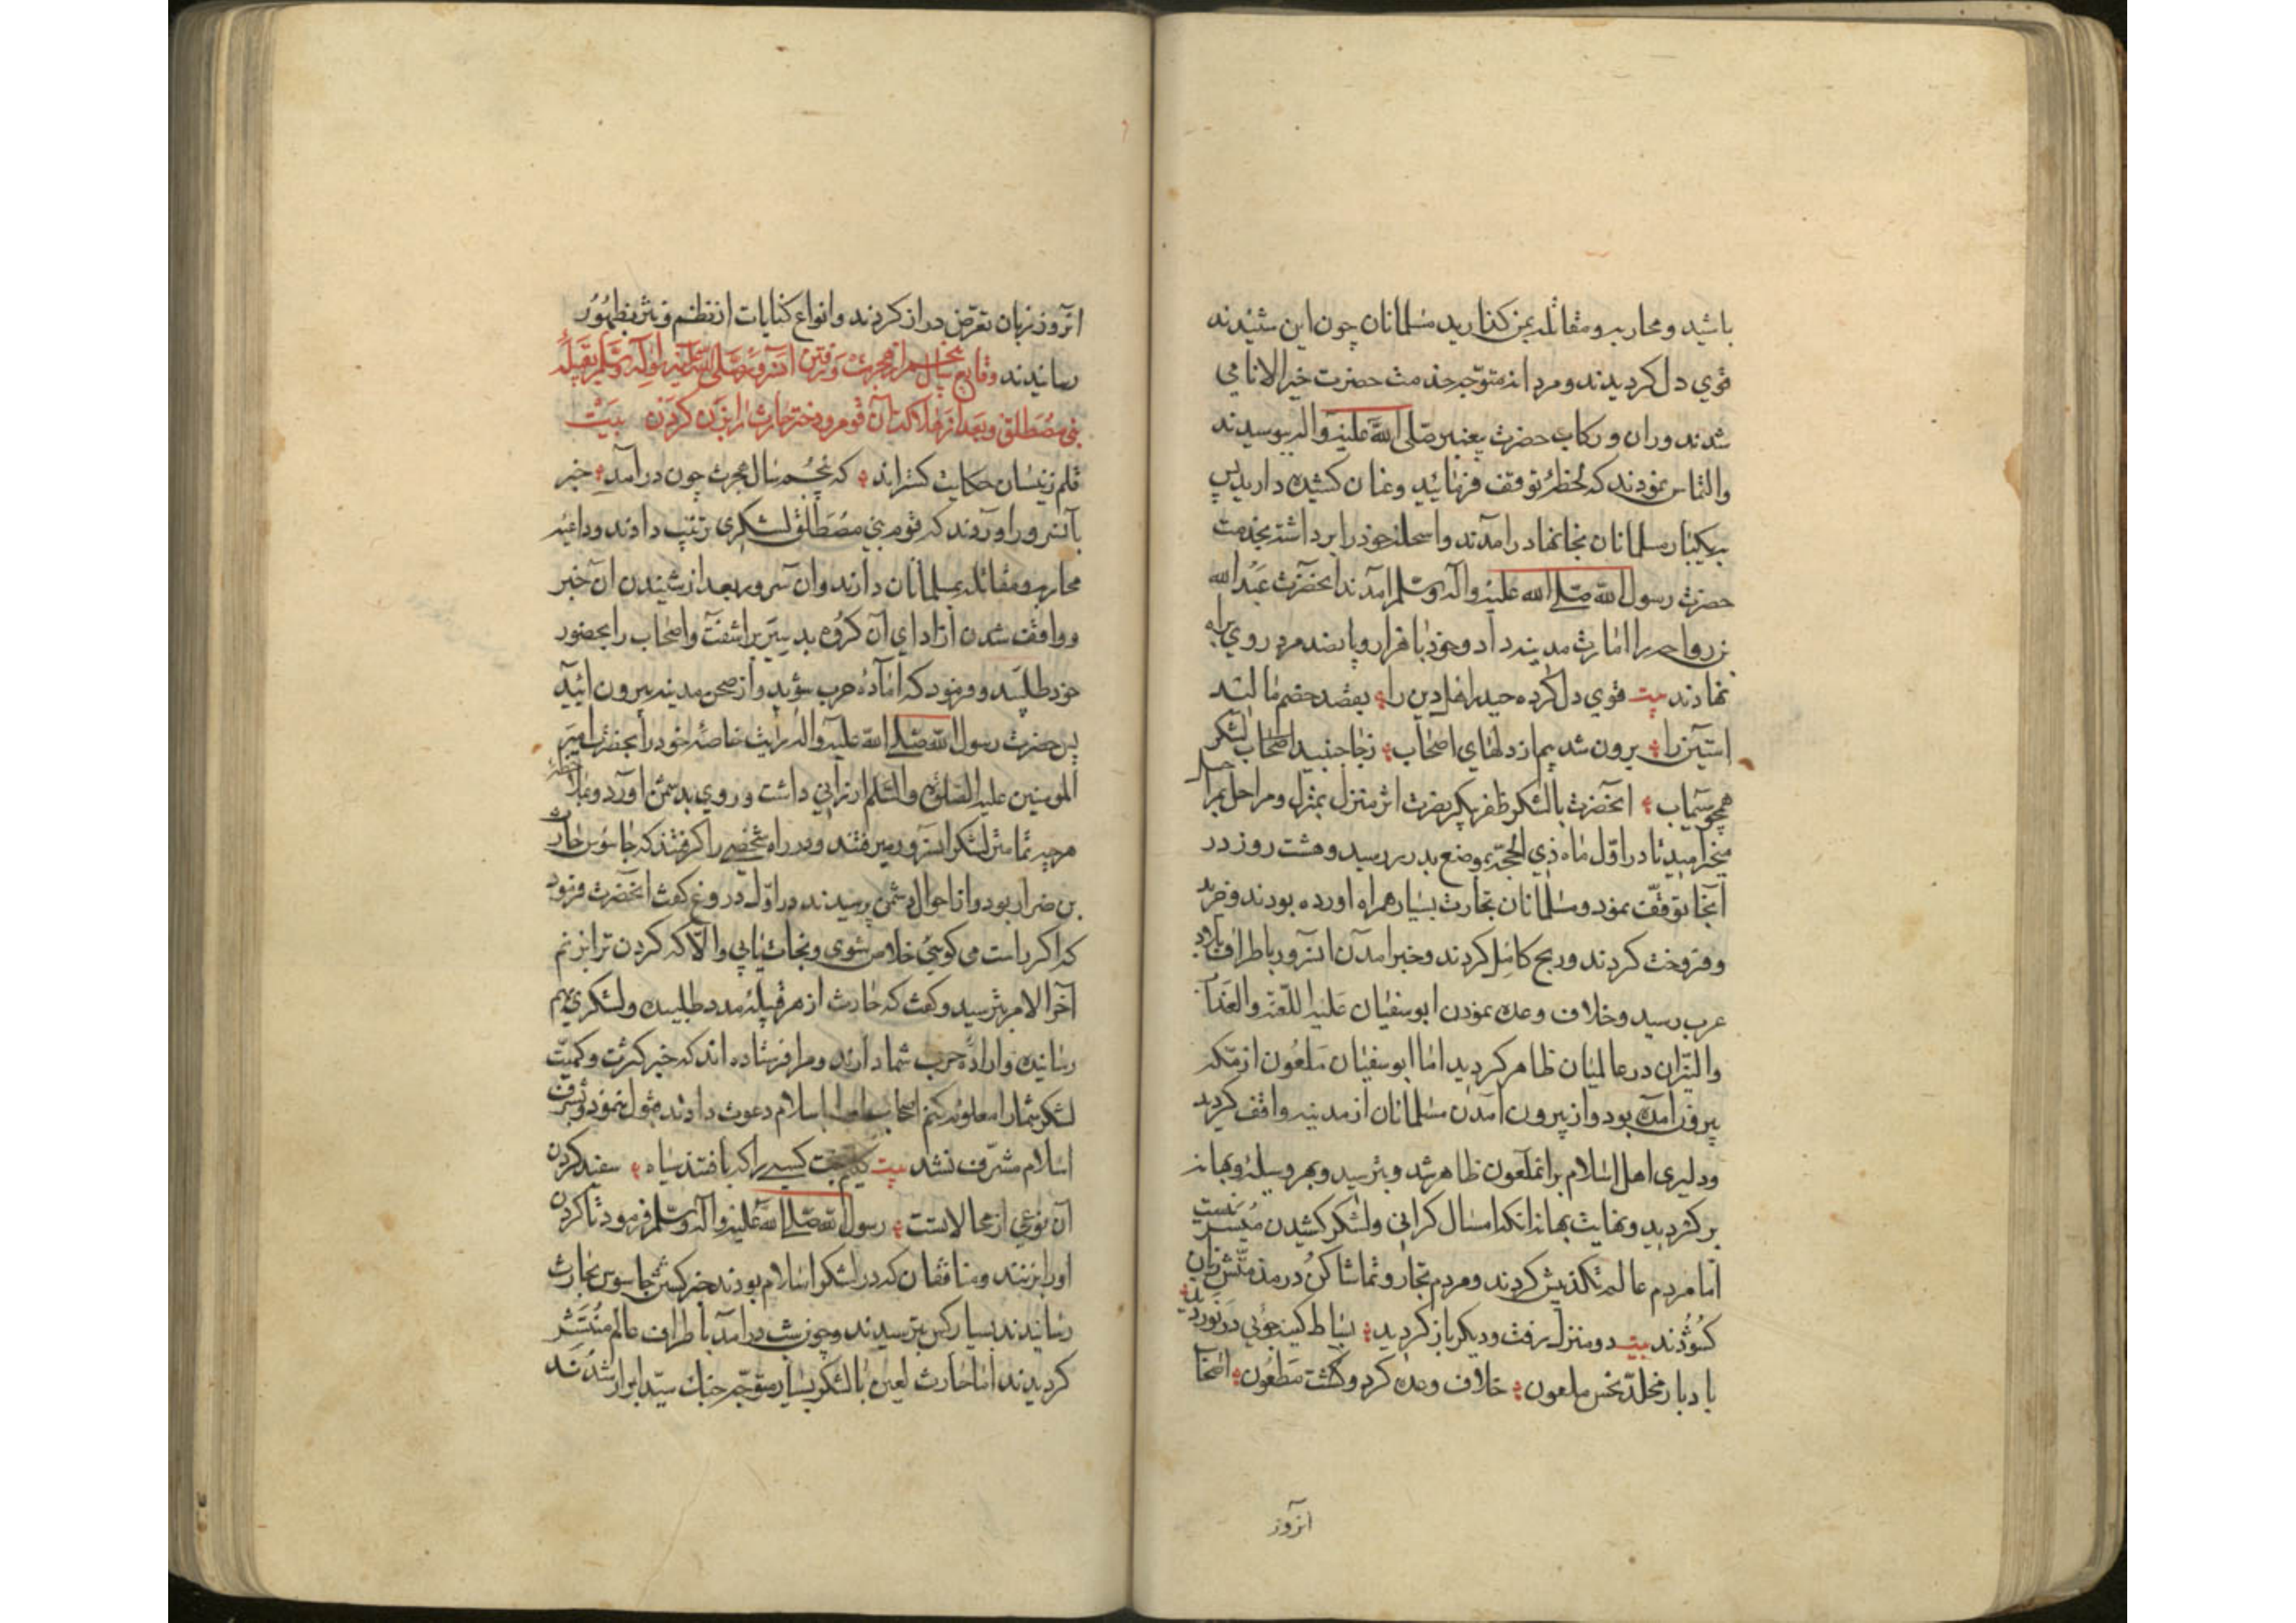 باشید و محاربه و مقاتله بمن کذارید مسلمانان چون این شنیدند
قوی دل کردیدند و مردانه متوجه خدمت حضرت خیر الانامی
شدند وران و رکاب حضرت پیغنبر صلی الله علیه واله بوسیدند
والتماس نمودند که لحظهٔ توقف فرمائید وعنان کشیده دارید پس
بیکبار مسلمانان بخانها درامدند واسحلهٔ خود را برداشته بخدمت
حضرت رسول الله صلی الله علیه واله وسلم امدند انحضرت عبد الله
بن رواحه را امارت مدینه داد و خود با هزار و پانصد مرد روی براه
نهادند بیت قوی دل کرده حیدر اهل دین را بقصد خصم مالید
استین را برون شد بیم از دلهای اصحاب زجا جنبید اصحاب لشکر
همچو سیماب انحضرت بالشکر ظفر پیکر بضرت اثر منزل بمنزل و مراحل بمراحل
میخرامید تا در اول ماه ذی الحجه بموضع بدر رسید و هشت روز در
انجا توقف نمود و مسلمانان تجارت بسیار همراه اورده بودند و خرید
و فروخت کردند و ربح کامل کردند و خبر امدن انسرور باطراف بلاد
عرب رسید و خلاف وعده نمودن ابوسفیان علیه اللعنة والعذاب
والنیران در عالمیان ظاهر کردید اما ابوسفیان ملعون از مکه
بیرون امده بود و از بیرون امدن مسلمانان از مدینه واقف کردید
ودلیری اهل اسلام بر انملعون ظاهر شد و بترسید و بهر وسیله و بهانه
بر کردید و نهایت بهانه انکه امسال کرانی و لشکر کشیدن میسر نیست
اما مردم عالم تکذیبش کردند و مردم تجار و تماشا کن در مذمتش زبان
کشودند بیت دو منزل رفت و دیکر باز کردید بساط کینه جوئی در نوردید
با دبار مخلد نحس ملعون خلاف وعده کرد و کشت مطعون انجا
انروز
انروز زبان تعرض دراز کردند و انواع کنایات از نظم و نثر بظهور
رسانیدند وقایع سال پنجم از هجرت و رفتن انسرور صلی الله علیه واله وسلم بقبیلهٔ
بنی مصطلق و بعد از هلاکت آن قوم و دختر حارث را بزن کردن بیت
قلم زینسان حکایت کستراند که پنجم سال هجرت چون درآمد خبر
بآنسرور اوردند که قوم بنی مصطلق لشکری ترتیب دادند و داعیهٔ
محاربه و مقاتله بمسلمانان دارند و ان سرور بعد از شنیدن ان خبر
و واقف شدن از ادای آن کروه بد سیر براشفت و اصحاب را بحضور
خود طلبید و فرمود که امادهٔ حرب شوید و از صحن مدینه بیرون ائید
پس حضرت رسول الله صلی الله علیه واله رایت خاصهٔ خود را بحضرت امیر
المومنین علیه الصلوة والسلام ارزانی داشت و روی بدشمن اورد و بملاحظهٔ
هرچه تمامتر لشکر انسرور میرفتند و در راه شخصی را کرفتند که جاسوس حارث
بن ضرار بود و از احوال دشمن پرسیدند در اول دروغ کفت انحضرت فرمود
که اکر راست می کوئی خلاص شوی و نجات یابی والا که کردن ترا بزنم
آخر الامر بترسید و کفت که حارث از هر قبیله مدد طلبیده و لشکری بهم
رسانیده و ارادهٔ حرب شما دارند و مرا فرستاده اند که خبر کثرت و کمیت
لشکر شما را معلوم کنم اصحاب اورا باسلام دعوت دادند قبول ننمود و بشرف
اسلام مشرف نشد بیت کلیم بخت کسی را که بافتند سیاه سفید کردن
آن نوعی از محالاتست رسول الله صلی الله علیه واله وسلم فرمود تا کردن
اورا بزنند و منافقان که در لشکر اسلام بودند خبر کشتن جاسوس بحارث
رسانیدند بسیار کس بترسیدند و چون شب درامد باطراف عالم منتشر
کردیدند اما حارث لعین بالشکر بسیار متوجه جنک سید ابرار شدند